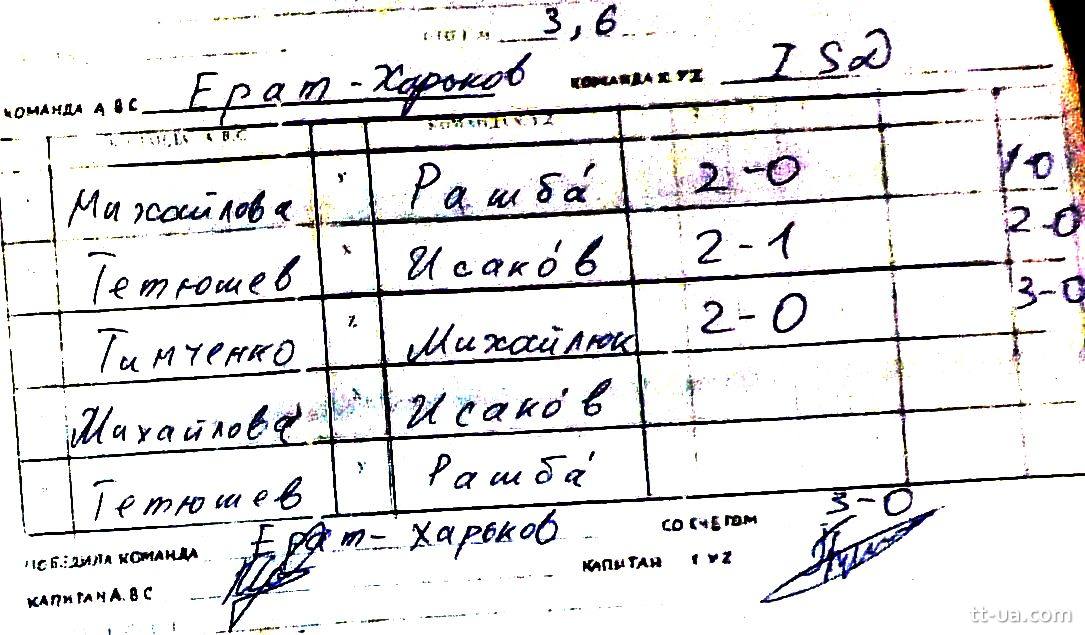 3,6
КОМАНДА А В С Ерат-Харьков КОМАНДА X Y Z I SD
КОМАНДА А.В.С КОМАНДА X.Y.Z
Михайлова x Рашба́ 2-0 1-0
Тетюшев x Исако́в 2-1 2-0
Тимченко x Михайлюк 2-0 3-0
Михайлова x Исако́в
Тетюшев x Рашба́
ПОБЕДИЛА КОМАНДА Ерат-Харьков СО СЧЕТОМ 3-0
КАПИТАН А.В С КАПИТАН Y Z
tt-ua.com